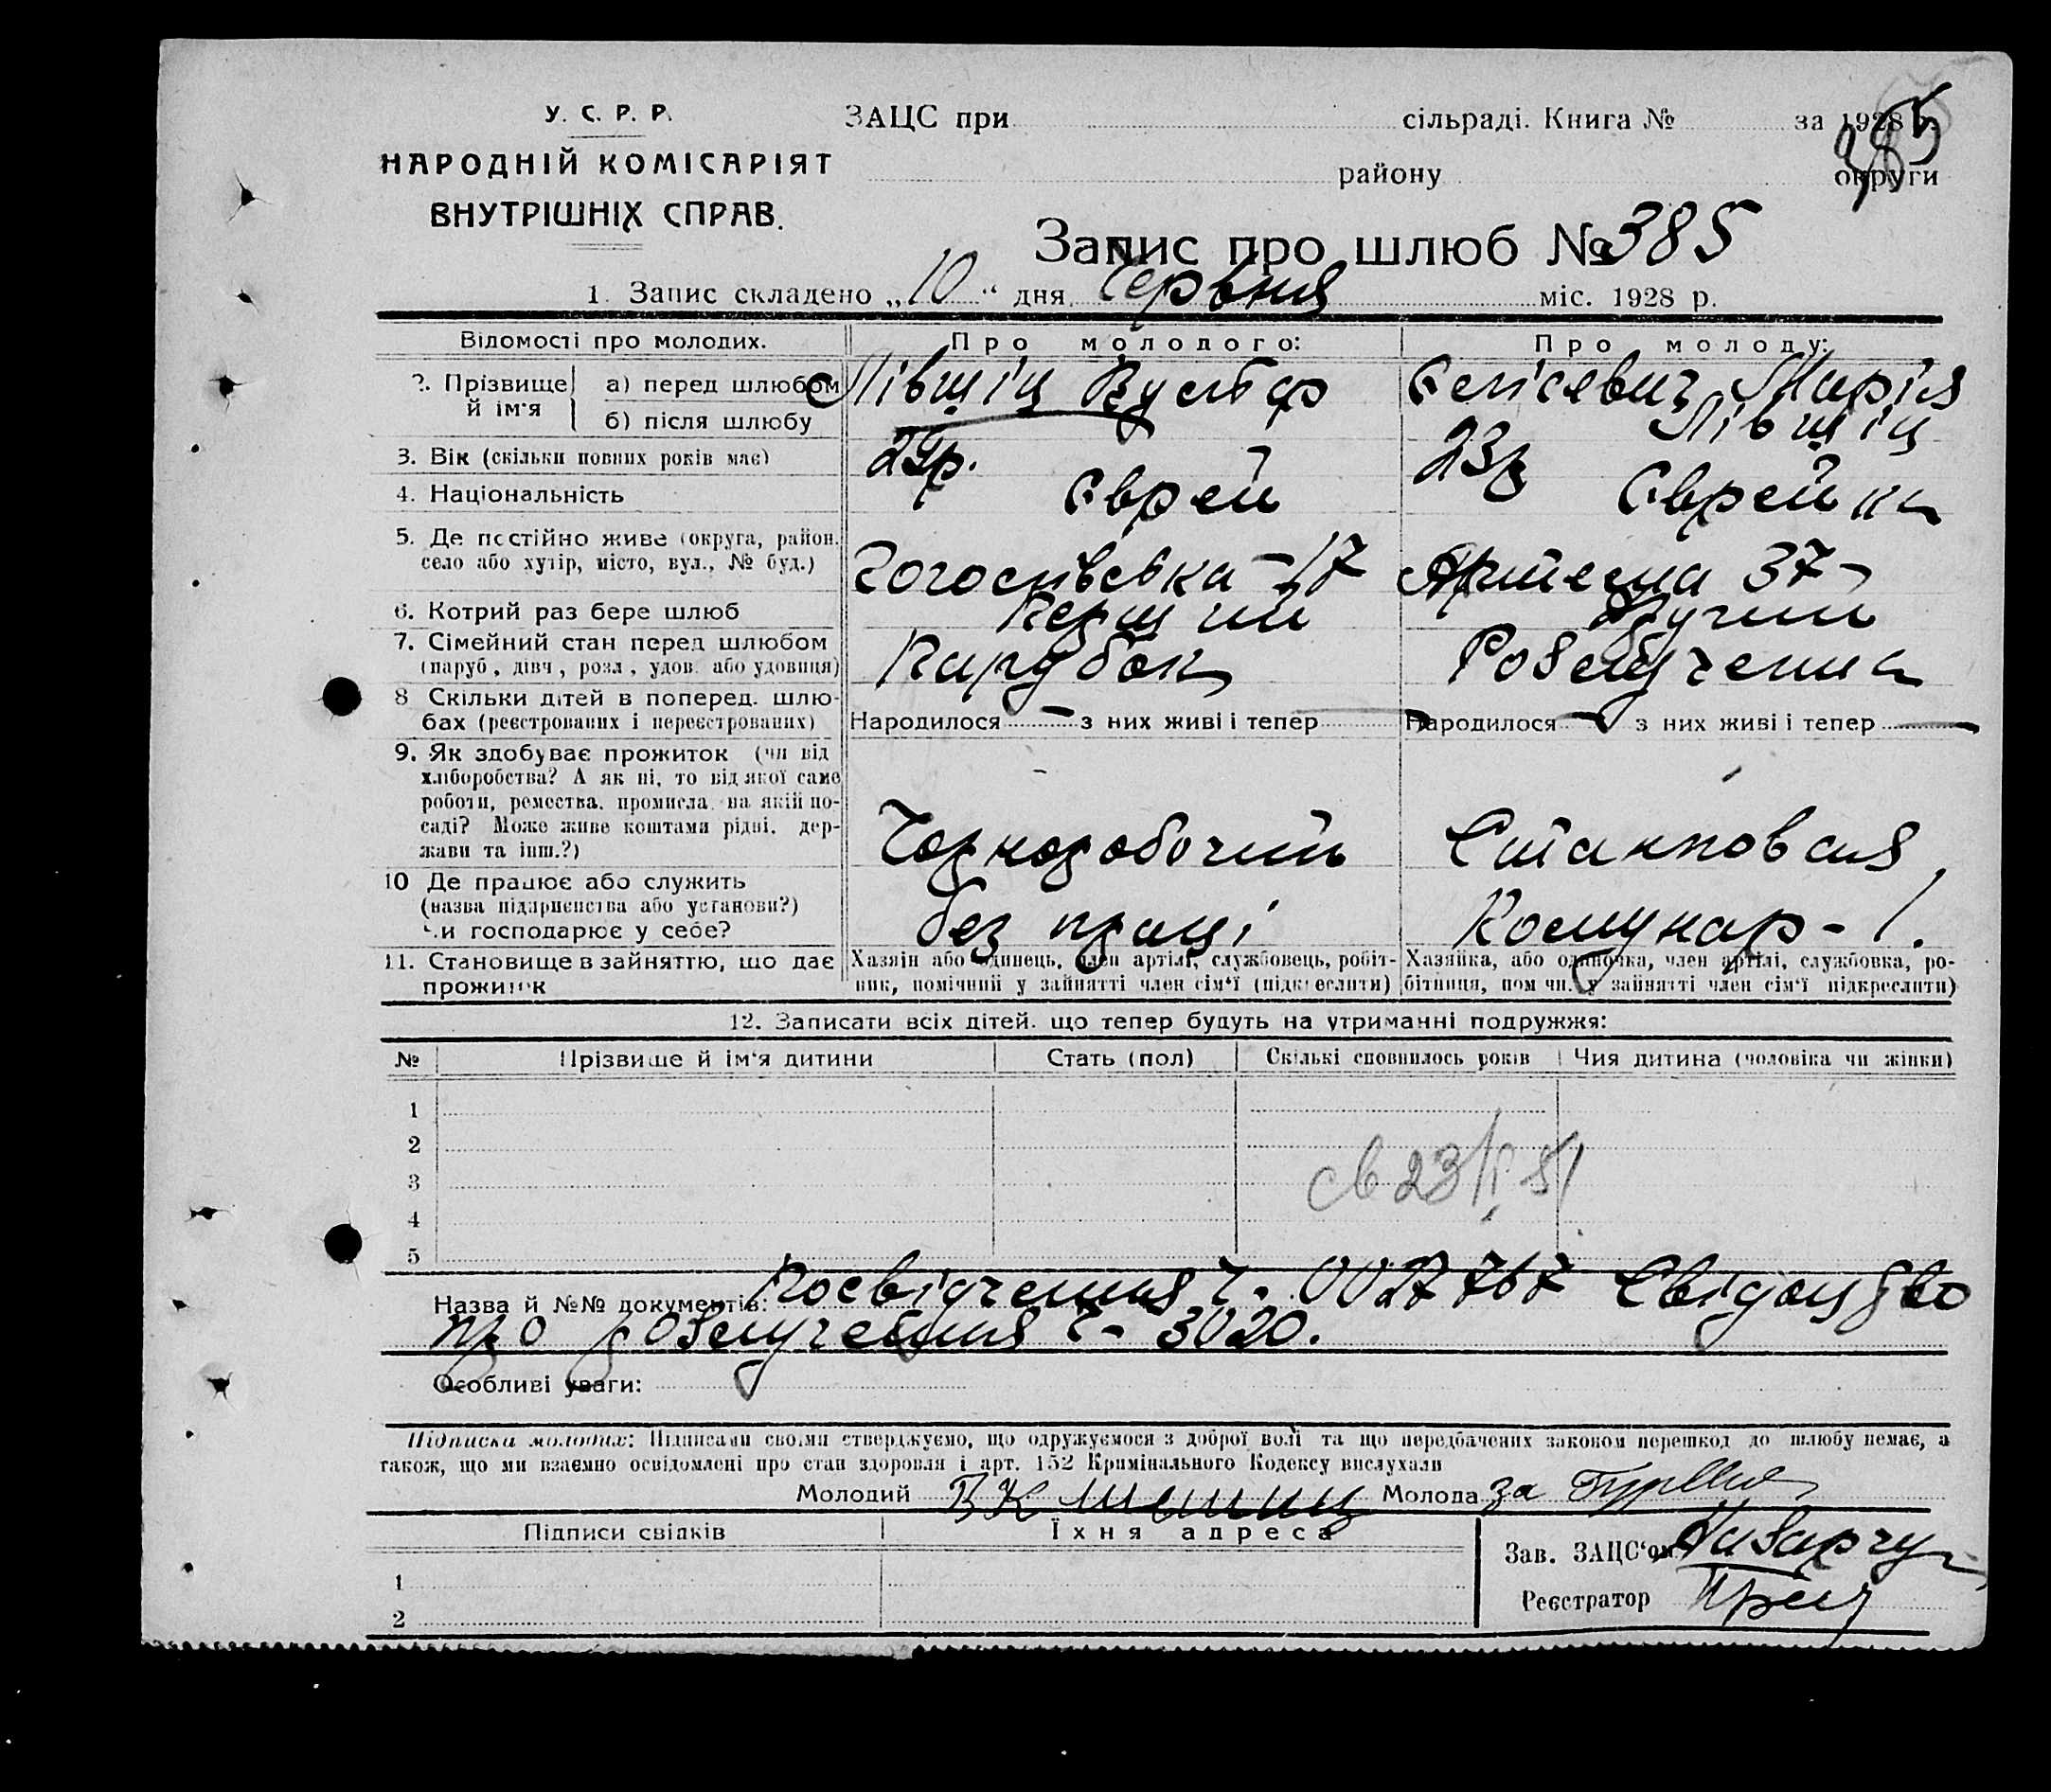 У. С. Р. Р.
НАРОДНІЙ КОМІСАРІЯТ
ВНУТРІШНІХ СПРАВ.
ЗАЦС при сільраді. Книга № за 1928
району округи
Запис про шлюб № 385
1. Запис складено „10" дня Червня міс. 1928 р.
Відомості про молодих. Про молодого: Про молоду:
2. Прізвище й ім'я а) перед шлюбом Лівшіц Марія
б) після шлюбу Лівшіц
3. Вік (скільки повних років має) 29р. 23р
4. Національність Єврей Єврейка
5. Де постійно живе (округа, район, село або хутір, місто, вул., № буд.) 17 Артема 37
6. Котрий раз бере шлюб Перший Другий
7. Сімейний стан перед шлюбом (паруб., дівч., розл., удов. або удовиця) Парубок Розлучена
8 Скільки дітей в поперед. шлюбах (реєстрованих і нереєстрованих) Народилося — з них живі і тепер Народилося — з них живі і тепер —
9. Як здобуває прожиток (чи від хліборобства? А як ні, то від якої саме роботи, ремества, промисла, на якій посаді? Може живе коштами рідні, держави та інш.?) Чорноробочий
10 Де працює або служить (назва підприємства або установи?) чи господарює у себе? без праці Комунар - 1.
11. Становище в зайняттю, що дає прожиток Хазяін або одинець, член артілі, службовець, робітник, помічний у зайнятті член сім'ї (підкреслити) Хазяйка, або одиночка, член артілі, службовка, робітниця, помічн. у зайнятті член сім'ї підкреслити)
12. Записати всіх дітей, що тепер будуть на утриманні подружжя:
№ Прізвище й ім'я дитини Стать (пол) Скількі сповнилось років Чия дитина (чоловіка чи жінки)
1
2
3
4
5
Назва й №№ документів: Посвідчення ч. 0027767 Свідоцтво
про розлучення ч- 3020.
Особливі уваги:
Підписка молодих: Підписами своїми стверджуємо, що одружуємося з доброї волі та що передбачених законом перешкод до шлюбу немає, а
також, що ми взаємно освідомлені про стан здоровля і арт. 152 Кримінального Кодексу вислухали
Молодий Молода за
Підписи свідків Їхня адреса
Зав. ЗАЦС'ом
1
Реєстратор
2